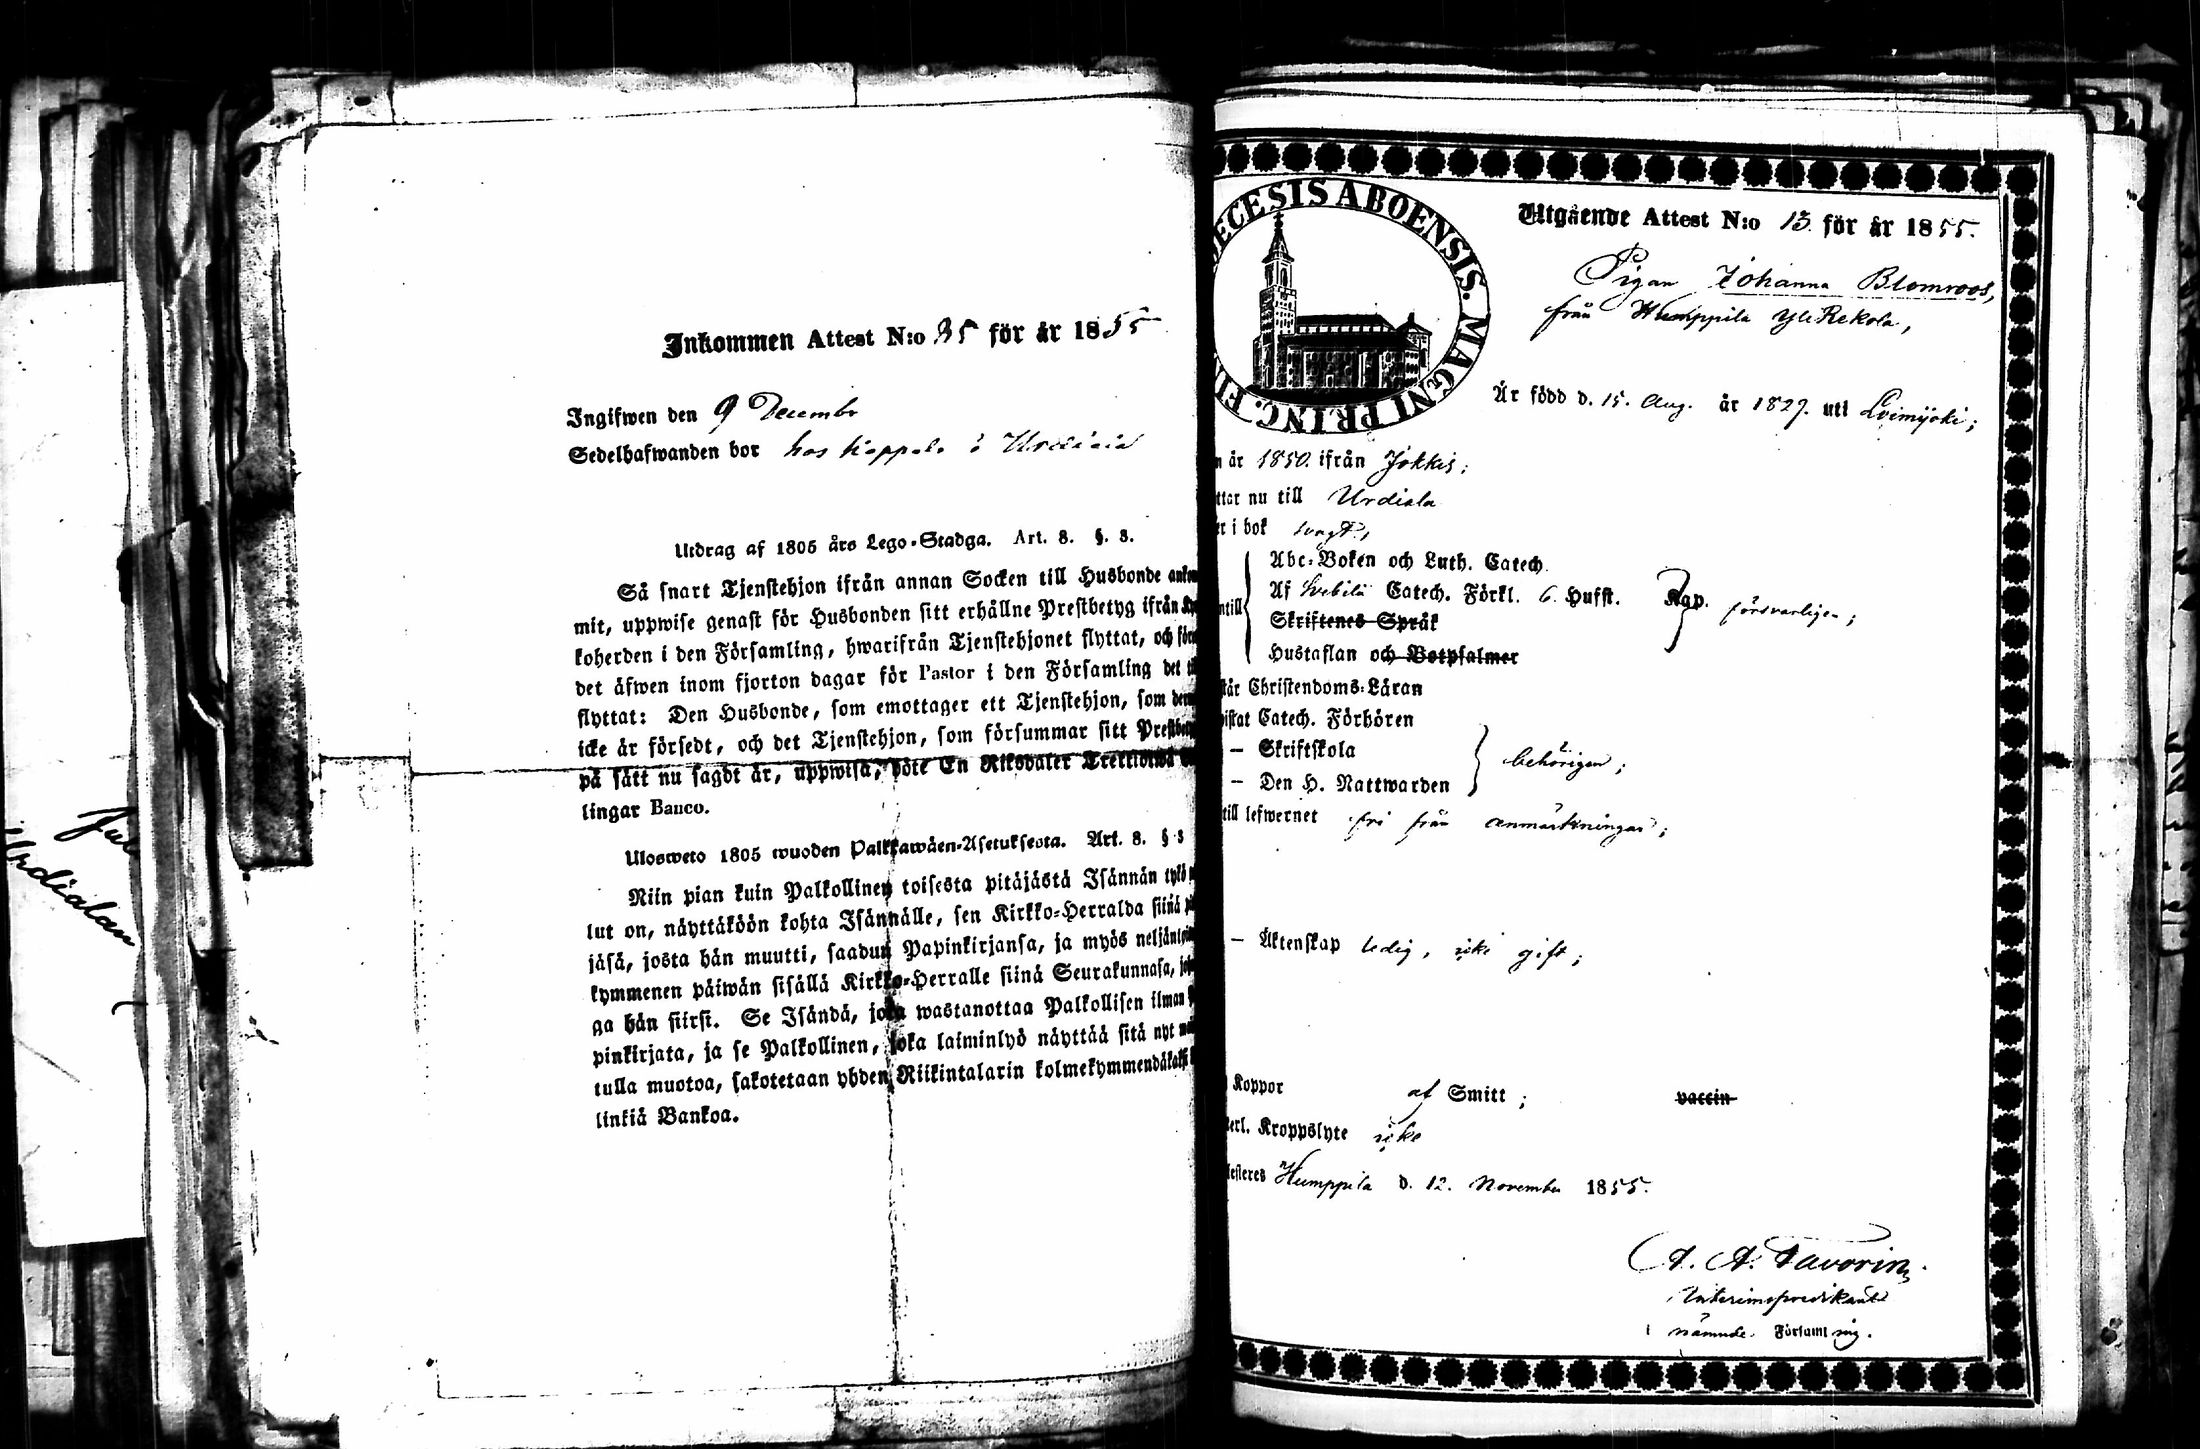 Jul
Urdialan
Inkommen Attest N:o 35 för år 1855
Ingifwen den 9 Decembr
Sedelhafwanden bor hos
Utdrag af 1805 års Lego-Stadga. Art. 8. §. 3.
Så snart Tjenstehjon ifrån annan Socken till Husbonde
mit, uppwise genast för Husbonden sitt erhållne Prestbetyg ifrån
koherden i den Församling, hwarifrån Tjenstehjonet flyttat, och
det äfwen inom fjorton dagar för Pastor i den Församling det
flyttat: Den Husbonde, som emottager ett Tjenstehjon, som
icke är försedt, och det Tjenstehjon, som försummar sitt
på sätt nu sagdt är, uppwisa, böte En Riksdaler Trettiotwå
lingar Banco.
Ulosweto 1805 wuoden Palkkawäen-Asetuksesta. Art. 8. § 3
Niin pian kuin Palkollinen toisesta pitäjästä Isännän työ
lut on, näyttäköön kohta Isännälle, sen Kirkko-Herralda siinä
jäsä, josta hän muutti, saadun Papinkirjansa, ja myös
kymmenen päiwän sisällä Kirkko-Herralle siinä Seurakunnasa,
ga hän siirsi. Se Isändä, joka wastanottaa Palkollisen ilman
pinkirjata, ja se Palkollinen, joka laiminlyö näyttää sitä nyt
tulla muotoa, sakotetaan yhden Riikintalarin
linkiä Bankoa.
ECESIS ABOENSIS. MAGNI PRINC. FI
Utgående Attest N:o 13. för år 1855.
Pigan Johanna Blomroos,
från Humppila Yli Rekola,
Är född d. 15. Aug. år 1829. uti Loimijoki;
år 1850. ifrån Jokkis;
ttar nu till Urdiala
i bok svagt,
Abc-Boken och Luth. Catech.
Af Svebilii Catech. Förkl. 6. Hufst. Kap. försvarligen;
ntill
Skriftenes Språk
Hustaflan och Botpsalmer
tår Christendoms-Läran
istat Catech. Förhören
– Skriftskola
behörigen;
– Den H. Nattwarden
till lefwernet fri från anmärkningar;
– Äktenskap ledig, icke gift;
Koppor af Smitt; vaccin
terl. Kroppslyte icke
testeres Humppila d. 12. November 1855.
A. A. Favorin,
Interimspredikant
i nämnde Församling.